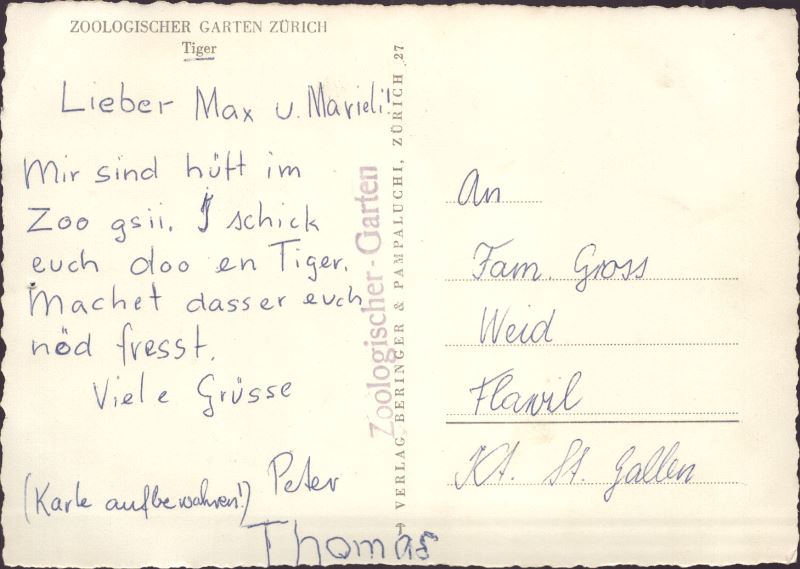 ZOOLOGISCHER GARTEN ZÜRICH
Tiger
Lieber Max u. Marieli!
Mir sind hütt im
Zoo gsii. I schick
euch doo en Tiger.
Machet dasser euch
nöd fresst.
Viele Grüsse
Peter
(Karte aufbewahren!)
Thomas
Zoologischer-Garten
VERLAG BERINGER & PAMPALUCHI, ZÜRICH 27
An
Fam. Gross
Weid
Flawil
Kt. St. Gallen